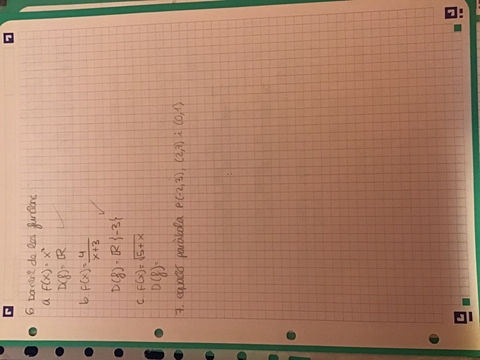 6. Domini de les funcions
a. F(x) = x²
D(f) = ℝ
b. F(x) = 4/(x+3)
D(f) = ℝ {-3}
c. F(x) = √5+x
D(f) =
7. equació paràbola P(-2,3), (2,7) i (0,1)